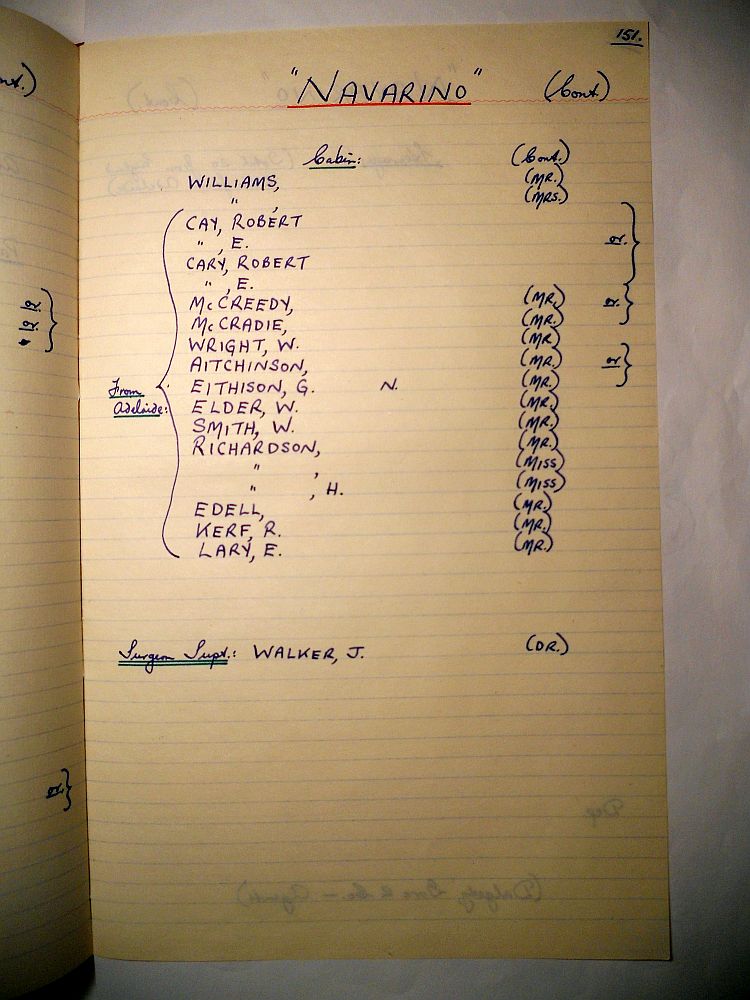 151.
"NAVARINO" (Cont)
Cabin: (Cont.)
WILLIAMS, (MR.)
" , (MRS.)
CAY, ROBERT
" , E. or.
CARY, ROBERT
" , E.
McCREEDY, (MR.) or.
McCRADIE, (MR.)
WRIGHT, W. (MR.)
AITCHINSON, (MR.) or
From EITHISON, G. N. (MR.)
Adelaide: ELDER, W. (MR.)
SMITH, W. (MR.)
RICHARDSON, (MR.)
" , (MISS)
" , H. (MISS)
EDELL, (MR.)
KERF, R. (MR.)
LARY, E. (MR.)
Surgeon Supt.: WALKER, J. (DR.)